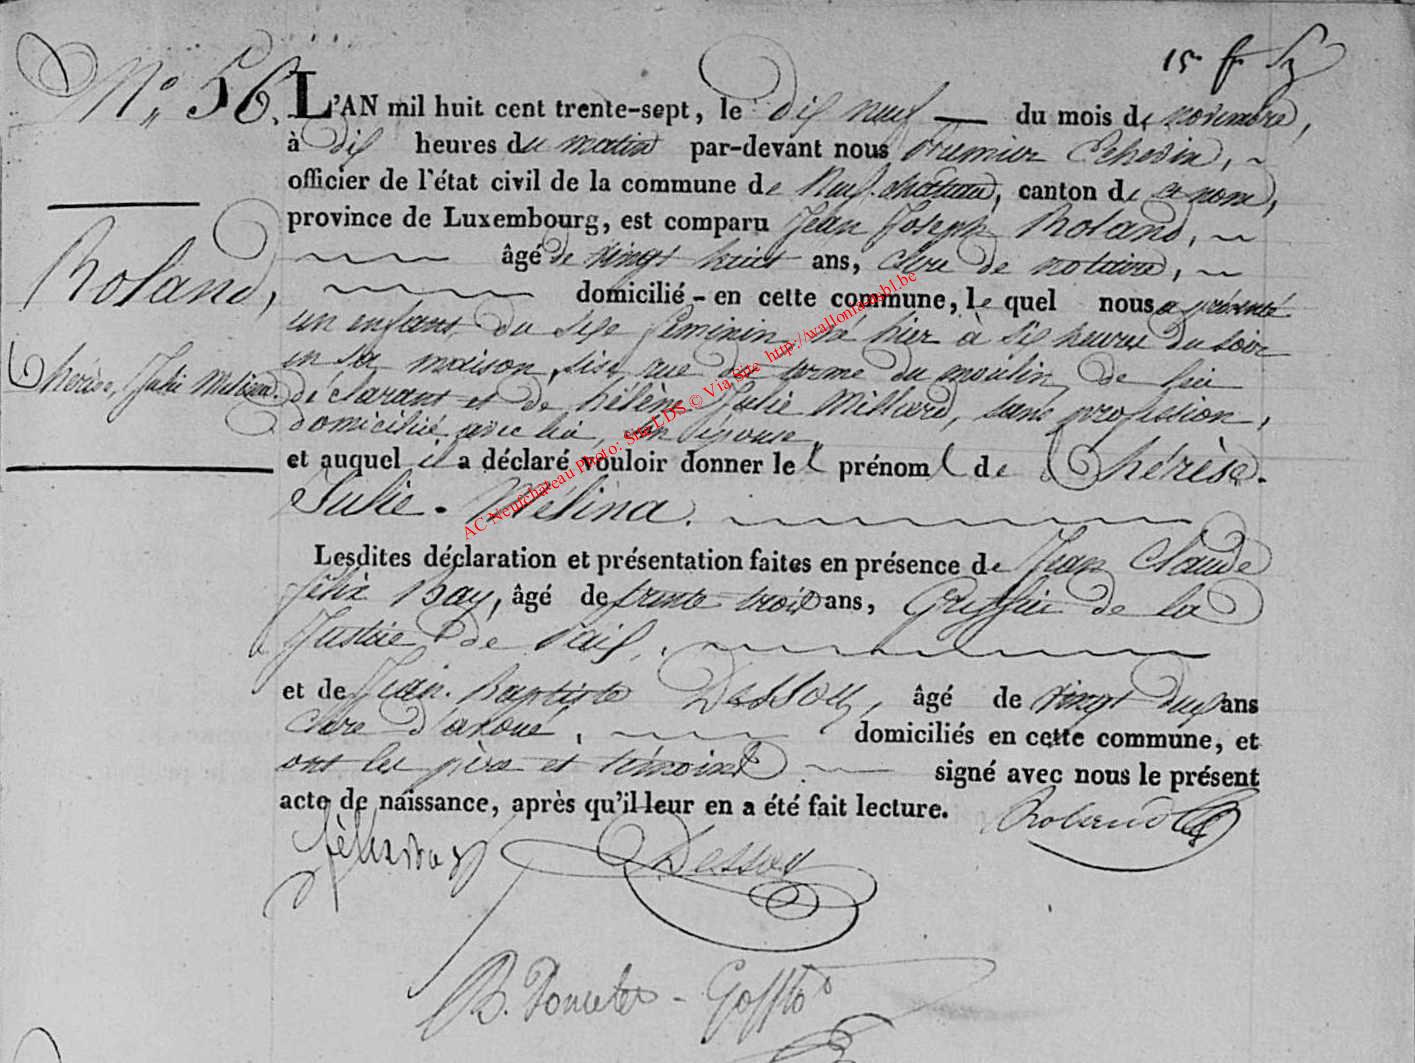 15 f
N° 56.
L'AN mil huit cent trente-sept, le dix neuf du mois de novembre,
à dix heures du matin par-devant nous Premier Echevin,
officier de l'état civil de la commune de Neufchâteau, canton de ce nom,
province de Luxembourg, est comparu Jean Joseph Roland,
âgé de vingt huit ans, Clerc de notaire,
Roland,
domicilié en cette commune, le quel nous a présenté
un enfant du sexe féminin, né hier à six heures du soir
en sa maison, sise rue du terme du moulin, de lui
Thérèse, Julie Mélina.
déclarant et de Hélène Julie Millard, sans profession,
domicilié avec lui, son épouse,
et auquel il a déclaré vouloir donner les prénoms de Thérèse.
Julie. Mélina.
AC Neufchateau Photo: Site LDS © Via Site http://wallonia-asbl.be
Lesdites déclaration et présentation faites en présence de Jean Claude
Félix Bay, âgé de trente trois ans, Greffier de la
Justice de Paix,
et de Jean Baptiste Dessoy, âgé de vingt deux ans
Clerc d'avoué, domiciliés en cette commune, et
ont les père et témoins signé avec nous le présent
acte de naissance, après qu'il leur en a été fait lecture. Roland
félix bay
Dessoy
B. Poncelet